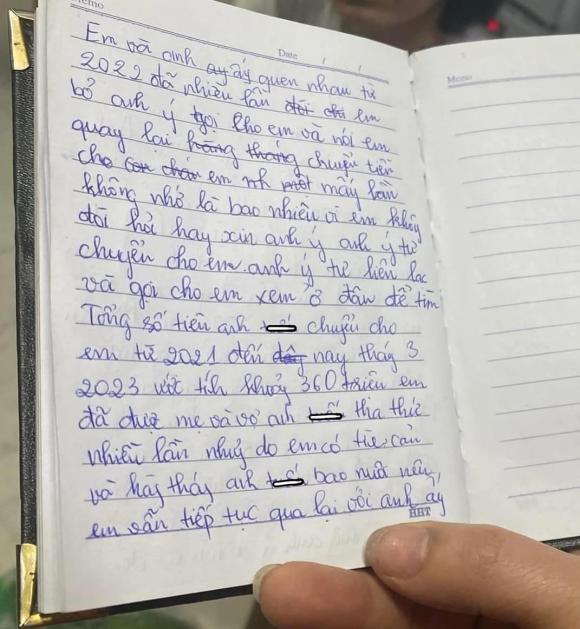 Memo
Date / /
Em và anh ấy quen nhau từ
2022 đã nhiều lần em
bỏ anh ý gọi cho em và nói em
quay lại chuyển tiền
cho em mấy lần
không nhớ là bao nhiêu vì em không
đòi hỏi hay xin anh ý anh ý tự
chuyển cho em anh ý tự liên lạc
và gọi cho em xem ở đâu để tìm
Tổng số tiền anh chuyển cho
em từ 2021 đến nay tháng 3
2023 ước tính khoảng 360 triệu em
đã được mẹ và vợ anh tha thứ
nhiều lần nhưng do em có
và hàng tháng anh bao nuôi nên
em vẫn tiếp tục qua lại với anh ấy
HHT
Memo